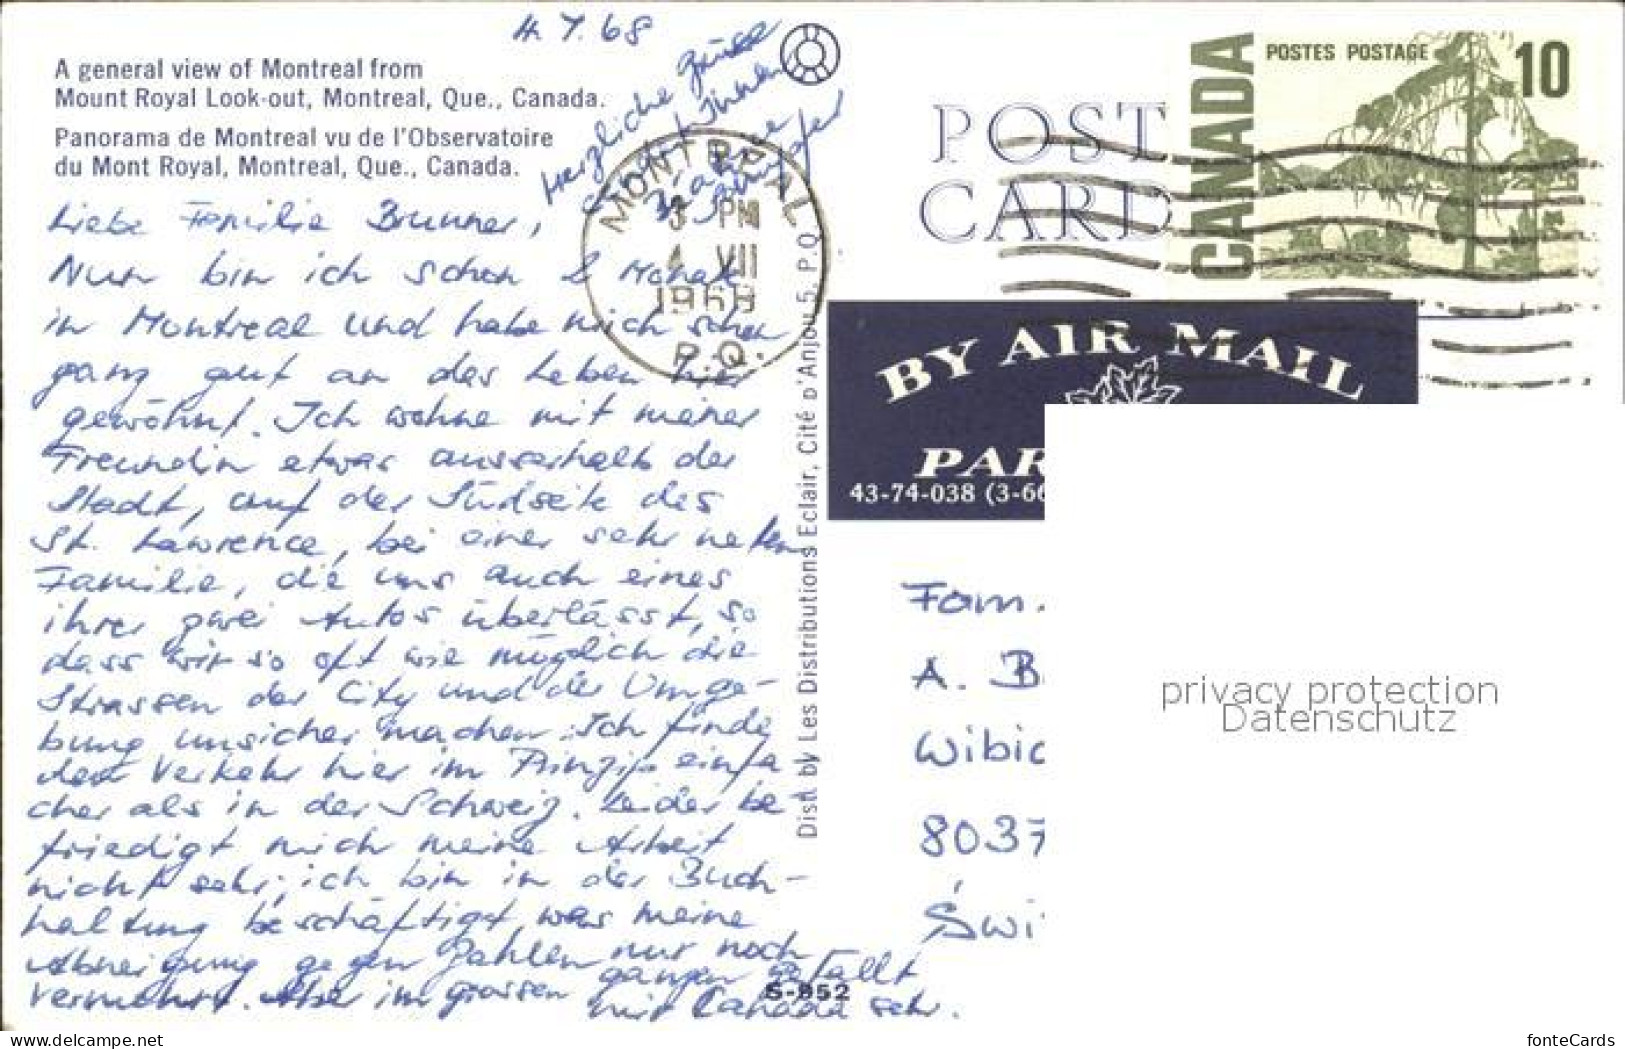 4. 7. 68
A general view of Montreal from
Mount Royal Look-out, Montreal, Que., Canada.
Panorama de Montreal vu de l'Observatoire
du Mont Royal, Montreal, Que., Canada.
Liebe Familie Brunner,
Nun bin ich schon 2 Monate
in Montreal und habe mich schon
ganz gut an das Leben hier
gewöhnt. Ich wohne mit meiner
Freundin etwas ausserhalb der
Stadt, auf der Südseite des
St. Lawrence, bei einer sehr netten
Familie, die uns auch eines
ihrer zwei Autos überlässt, so
dass wir so oft wie möglich die
Strassen der City und der Umge-
bung unsicher machen. Ich finde
den Verkehr hier im Prinzip einfa
cher als in der Schweiz. Leider be
friedigt mich meine Arbeit
nicht sehr; ich bin in der Buch-
haltung beschäftigt, was meine
Abneigung gegen Zahlen nur noch
vermehrt. Aber im grossen ganzen gefällt
mir Canada sehr.
Herzliche Grüsse
Ihnen
MONTREAL
3 PM
4 VII
1968
P.Q.
POST
CARD
CANADA
POSTES POSTAGE
10
BY AIR MAIL
PAR
43-74-038 (3-66
Fam.
A. B
Wibic
8037
Swi
privacy protection
Datenschutz
Dist. by Les Distributions Eclair, Cité d'Anjou 5, P.Q.
S-952
delcampe.net
fonteCards